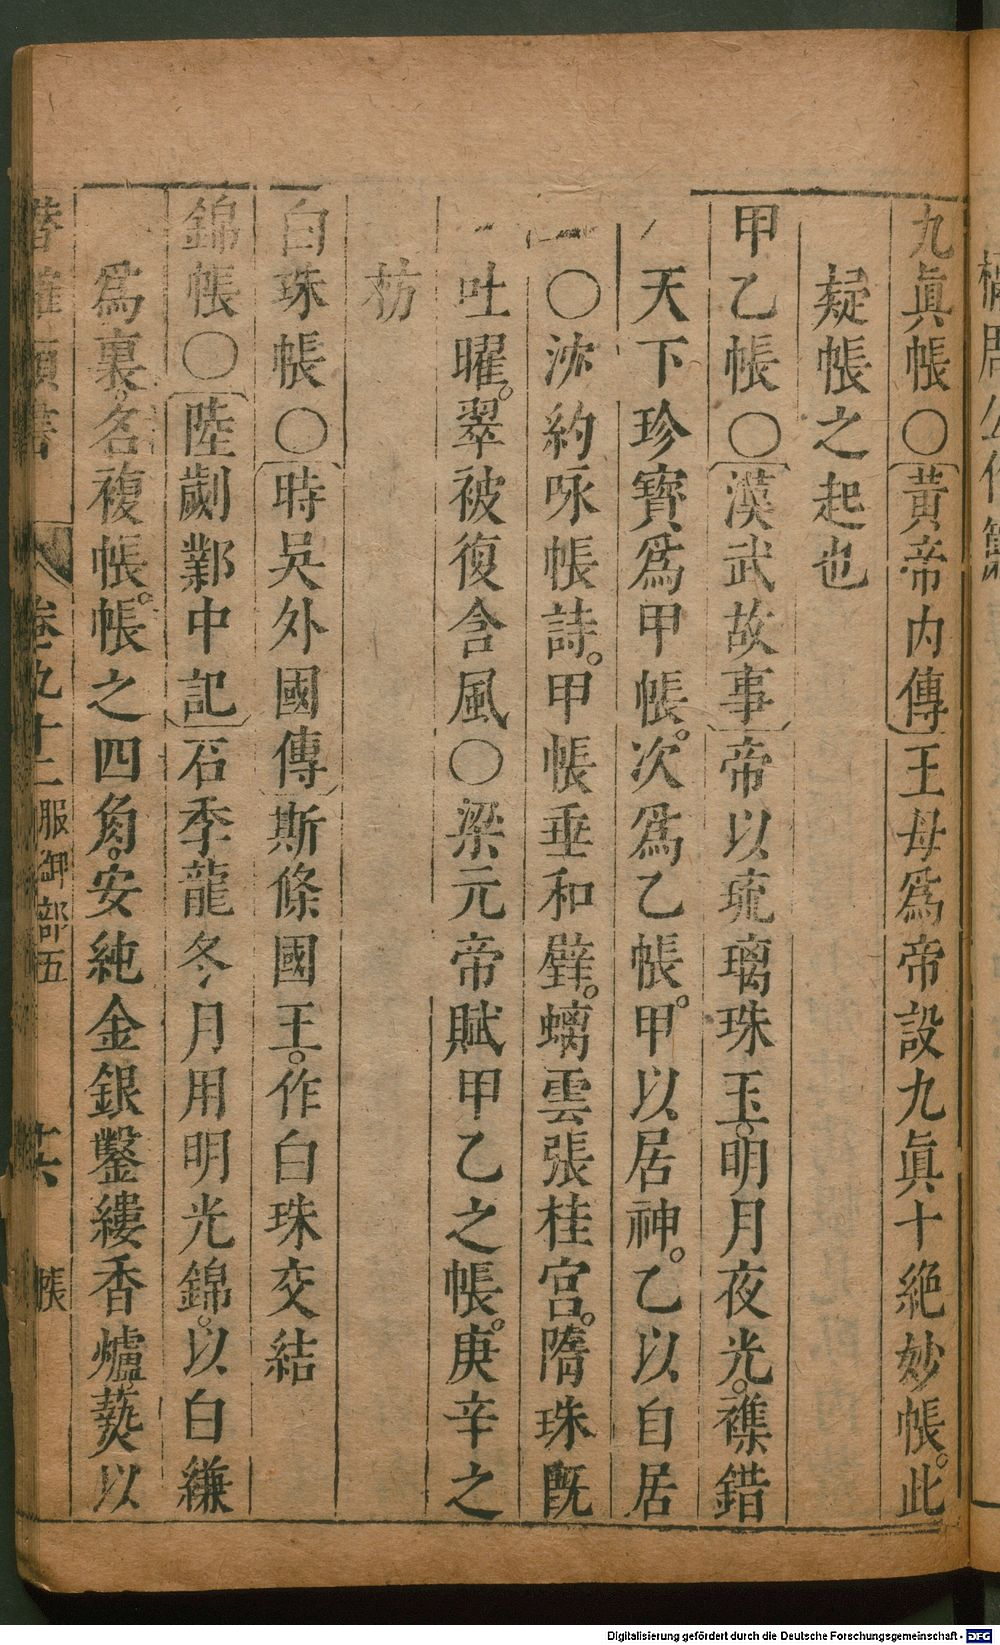 九眞帳〇黃帝内傳王母爲帝設九眞十絶妙帳。此
疑帳之起也
甲乙帳〇漢武故事帝以琉璃珠玉。明月夜光。襍錯
天下珍寶爲甲帳。次爲乙帳。甲以居神。乙以自居
〇沈約咏帳詩。甲帳垂和璧。螭雲張桂宮。隋珠既
吐曜。翠被復含風〇梁元帝賦甲乙之帳。庚辛之
枋
白珠帳〇時吳外國傳斯條國王。作白珠交結
錦帳〇陸劌鄴中記石季龍冬月用明光錦。以白縑
爲裏。名複帳。帳之四角。安純金銀鑿縷香爐。爇以
潛確類書 卷九十二 服御部五 十六 帳
Digitalisierung gefördert durch die Deutsche Forschungsgemeinschaft - DFG